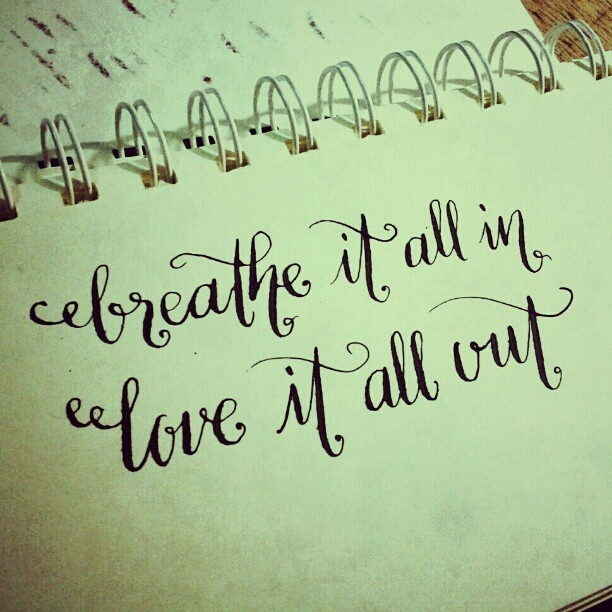 breathe it all in
love it all out